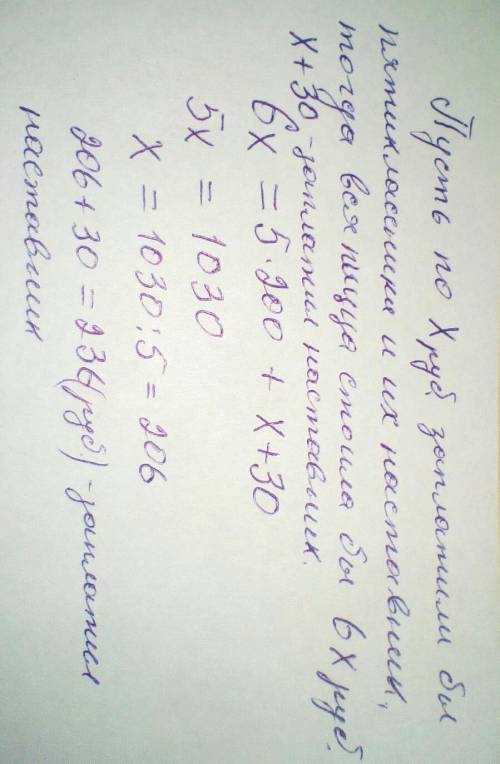 Пусть по X руб. заплатили бы
пятиклассники и их наставник,
тогда вся пицца стоила бы 6X руб.
X+30 - заплатил наставник.
6X = 5·200 + X+30
5X = 1030
X = 1030:5 = 206
206+30=236(руб) - заплатил
наставник